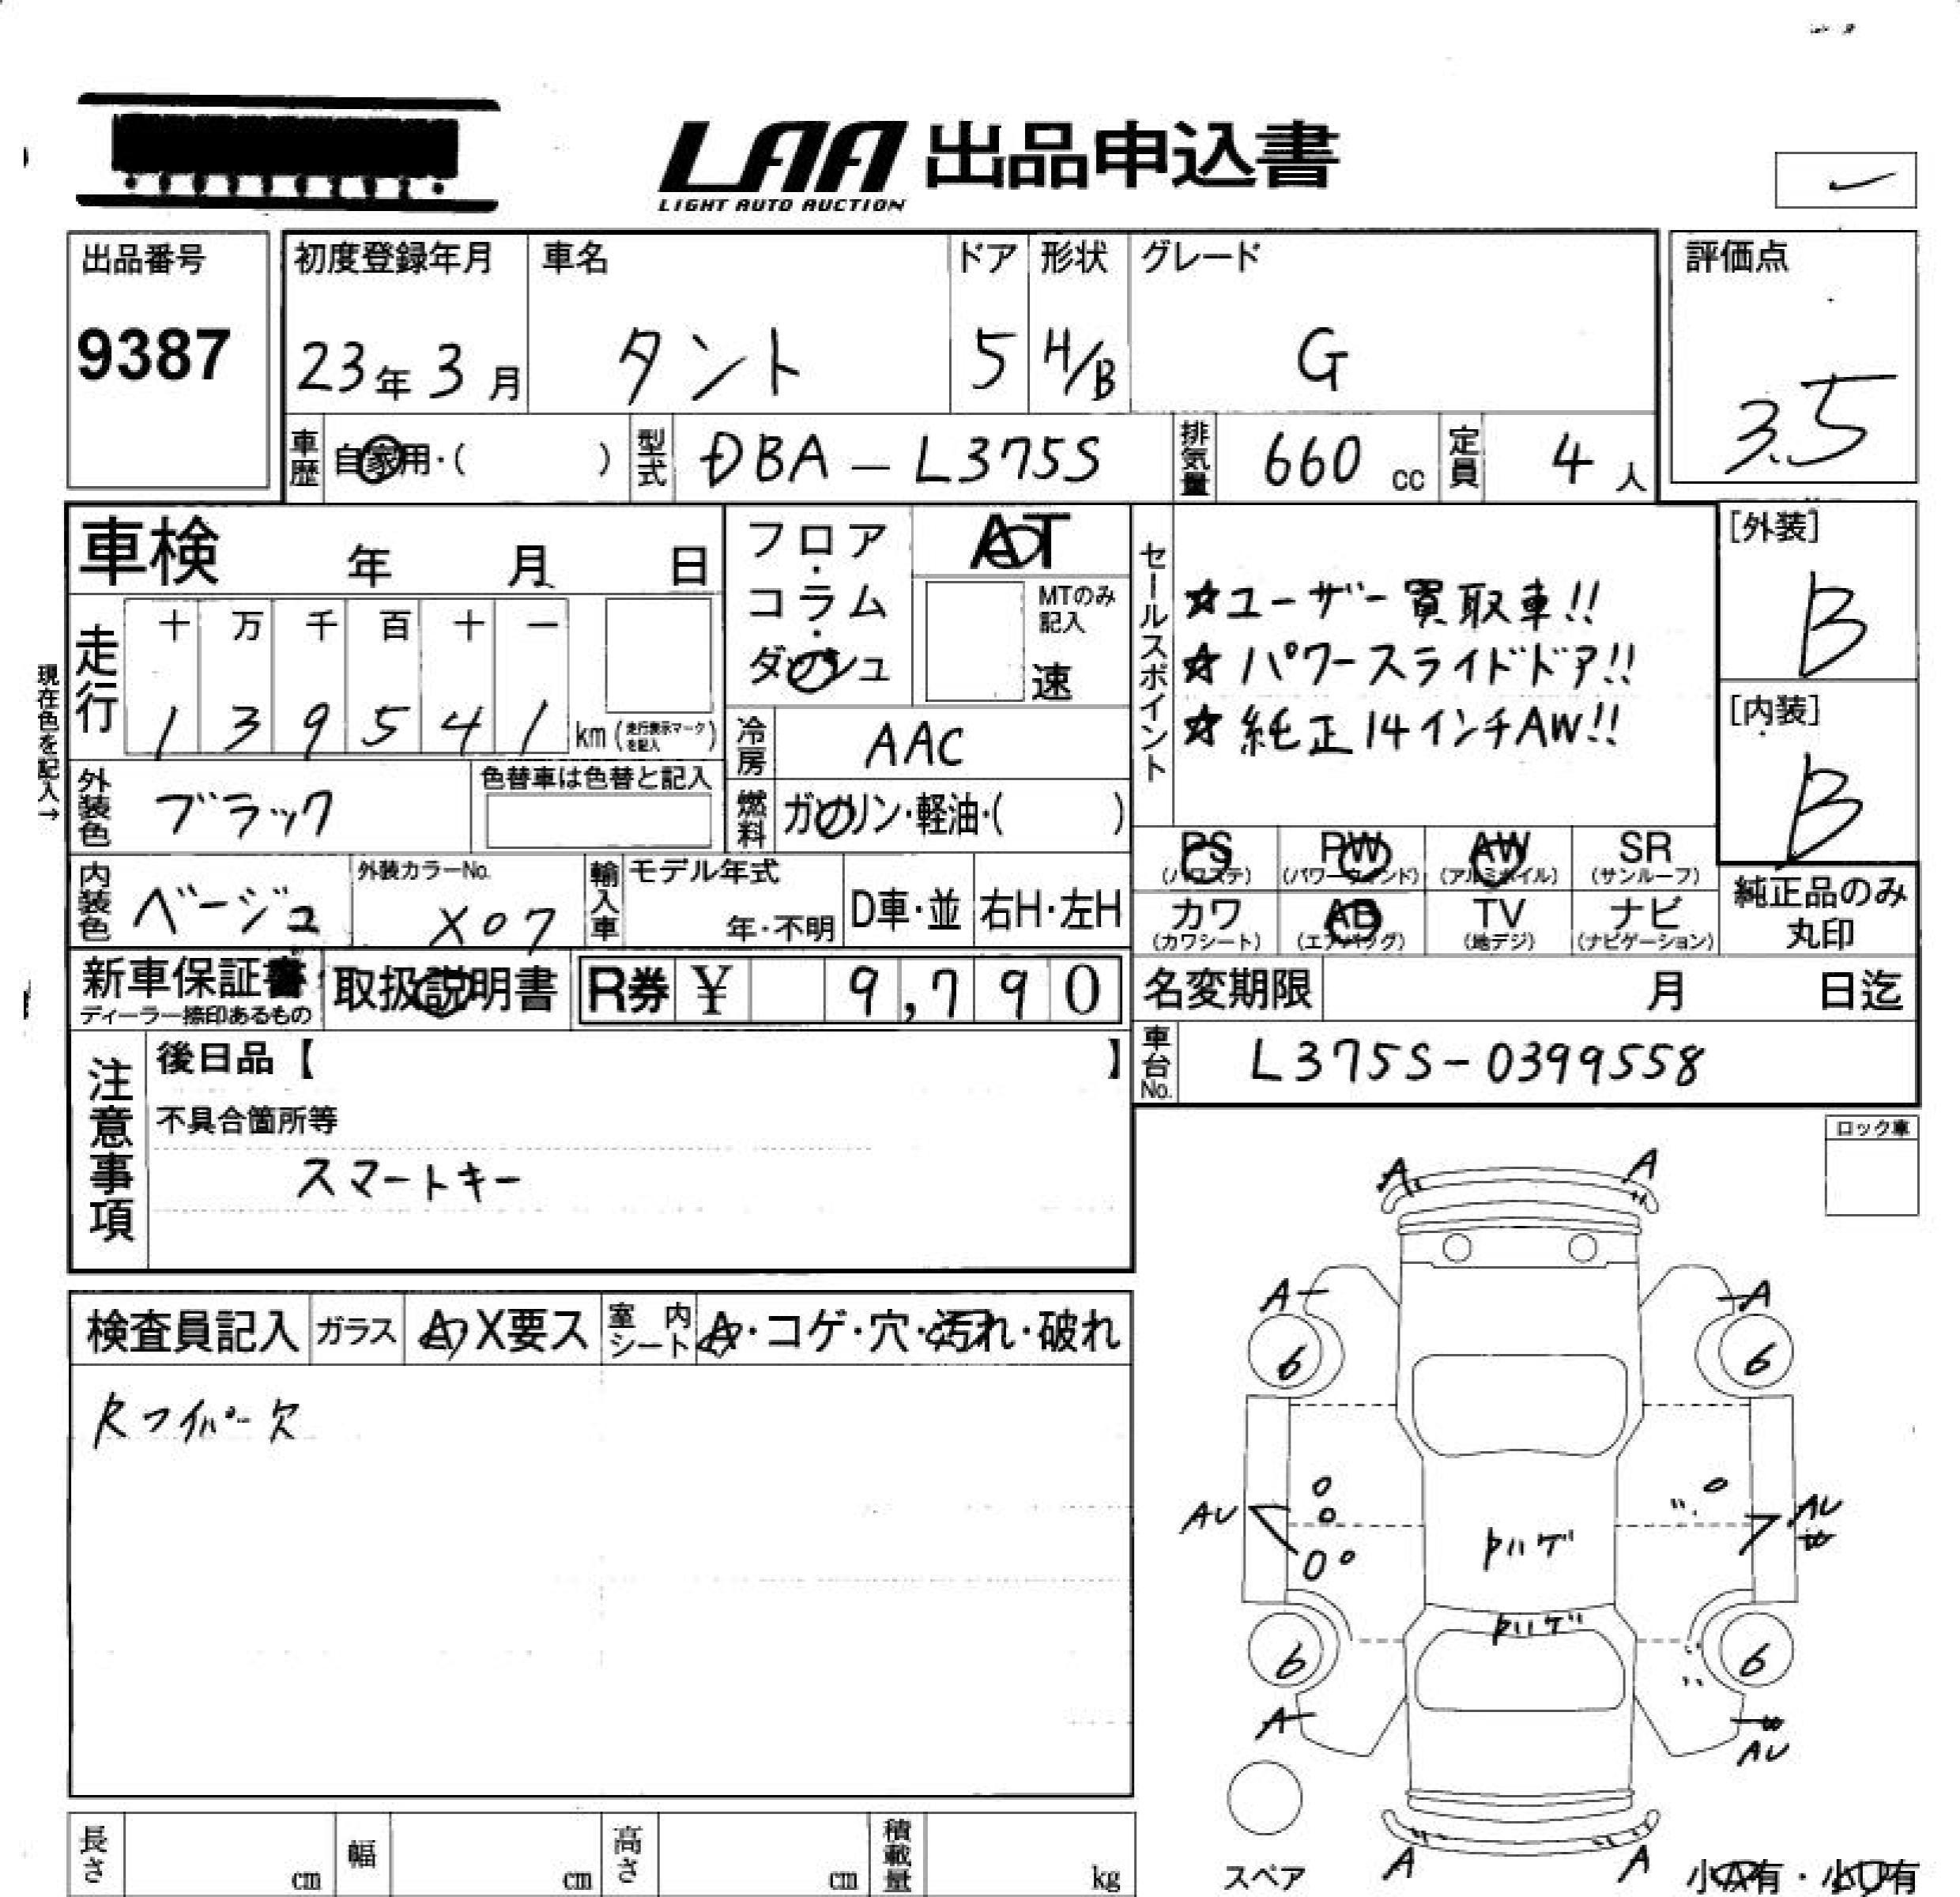 LAA 出品申込書
LIGHT AUTO AUCTION
出品番号
9387
初度登録年月
23年 3月
車名
タント
ドア
5
形状
H/B
グレード
G
評価点
3.5
車歴
自家用・( )
型式
DBA - L375S
排気量
660 cc
定員
4 人
車検 年 月 日
フロア・コラム・ダッシュ
AT
MTのみ記入
速
セールスポイント
☆ユーザー買取車!!
☆パワースライドドア!!
☆純正14インチAW!!
[外装]
B
[内装]
B
現在色を記入→
走行
十 万 千 百 十 一
1 3 9 5 4 1 km (走行表示マークを記入)
冷房
AAC
外装色
ブラック
色替車は色替と記入
燃料
ガソリン・軽油・( )
PS
(パワステ)
PW
(パワーウインド)
AW
(アルミホイル)
SR
(サンルーフ)
カワ
(カワシート)
AB
(エアバッグ)
TV
(地デジ)
ナビ
(ナビゲーション)
純正品のみ
丸印
内装色
ベージュ
外装カラーNo.
X07
輸入車
モデル年式
年・不明
D車・並
右H・左H
新車保証書
ディーラー捺印あるもの
取扱説明書
R券 ¥ 9,790
名変期限 月 日迄
車台No.
L375S-0399558
注意事項
後日品【 】
不具合箇所等
スマートキー
ロック車
検査員記入
ガラス
A X要ス
室内シート
A・コゲ・穴・汚れ・破れ
Rワイパー欠
A
A
A
A
6
6
AU
AU
トハゲ
トハゲ
6
6
A
AU
A
A
スペア
小A有・小U有
長さ cm
幅 cm
高さ cm
積載量 kg